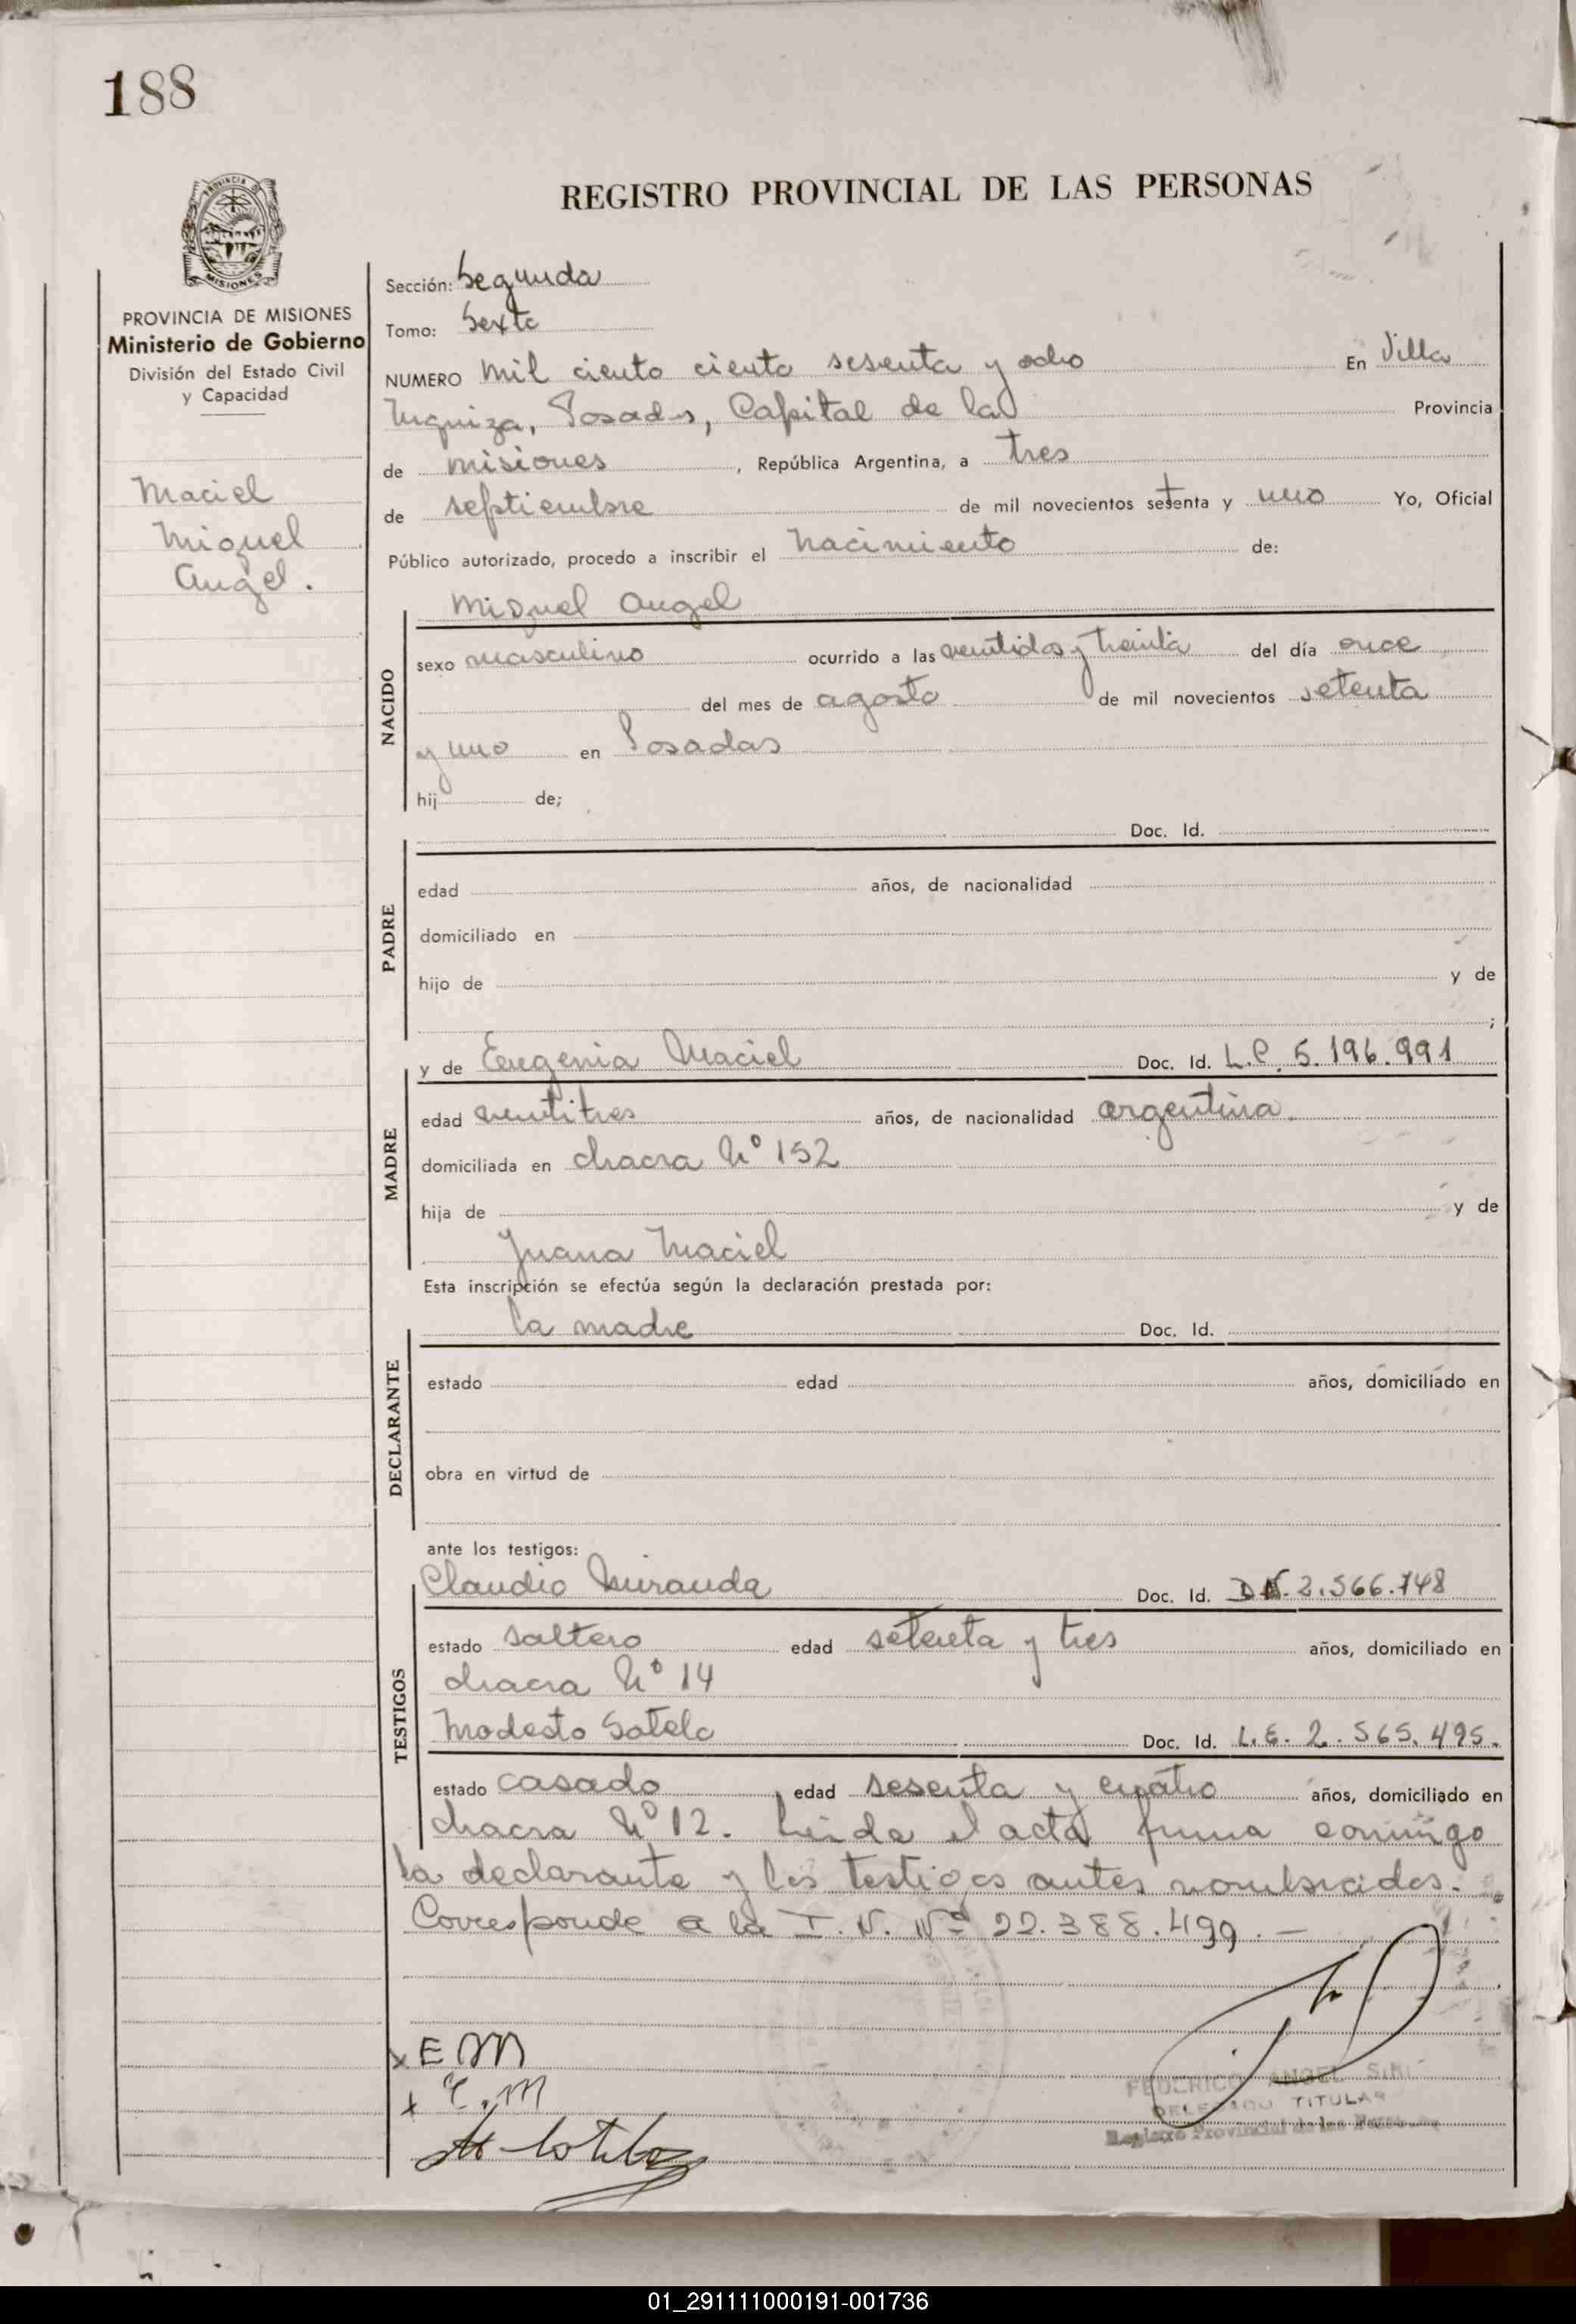 188
PROVINCIA DE MISIONES
REGISTRO PROVINCIAL DE LAS PERSONAS
PROVINCIA DE MISIONES
Ministerio de Gobierno
División del Estado Civil
y Capacidad
Maciel
Miguel
Angel.
Sección: Segunda
Tomo: Sexto
NUMERO mil ciento ciento sesenta y ocho En Villa
Urquiza, Posadas, Capital de la Provincia
de misiones, República Argentina, a tres
de septiembre de mil novecientos setenta y uno Yo, Oficial
Público autorizado, procedo a inscribir el nacimiento de:
Miguel Angel
NACIDO
sexo masculino ocurrido a las ventidos y treinta del día once
del mes de agosto de mil novecientos setenta
y uno en Posadas
hij de;
Doc. Id.
PADRE
edad años, de nacionalidad
domiciliado en
hijo de y de
;
y de Eugenia Maciel Doc. Id. L.C. 5.196.991
MADRE
edad ventitres años, de nacionalidad argentina.
domiciliada en chacra Nº 152
hija de y de
Juana Maciel
Esta inscripción se efectúa según la declaración prestada por:
la madre Doc. Id.
DECLARANTE
estado edad años, domiciliado en
obra en virtud de
ante los testigos:
Claudio Miranda Doc. Id. 2.566.748
TESTIGOS
estado soltero edad setenta y tres años, domiciliado en
chacra Nº 14
Modesto Sotelo Doc. Id. L.E. 2.565.495.
estado casado edad sesenta y cuatro años, domiciliado en
chacra Nº 12. Leida el acta firma conmigo
la declarante y los testigos antes nombrados.
Corresponde a la I.N. Nº 22.388.499.-
x E M
x C.M
FEDERICO ANGEL
DELEGADO TITULAR
Registro Provincial de las Personas
01_291111000191-001736